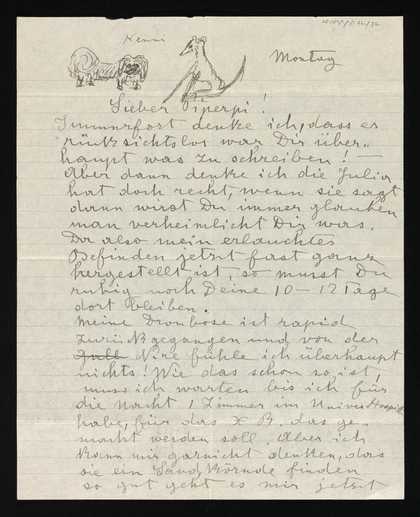 Henni
Montag
Lieber Piperpi!
Immerfort denke ich, dass es
rücksichtslos war Dir über-
haupt was zu schreiben! —
Aber dann denke ich die Julia
hat doch recht, wenn sie sagt
dann wirst Du immer glauben
man verheimlicht Dir was.
Da also mein erlauchtes
Befinden jetzt fast ganz
hergestellt ist, so musst Du
ruhig noch Deine 10–12 Tage
dort bleiben.
Meine Trombose ist rapid
zurückgegangen und von der
Niere fühle ich überhaupt
nichts! Wie das schon so ist,
muss ich warten bis ich für
die Nacht 1 Zimmer im
habe, für das X B. das ge-
macht werden soll. Aber ich
kann mir garnicht denken, das
sie ein Sand Körnde finden
so gut geht es mir jetzt